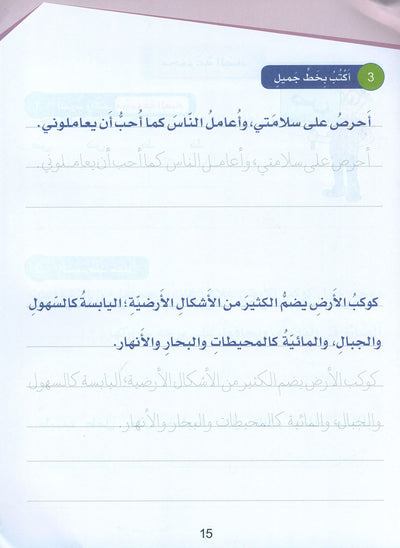 3 أَكتُبُ بِخَطٍّ جَميلٍ
أَحرِصُ على سلامَتي، وأُعاملُ النّاسَ كما أُحبُّ أن يعاملوني.
أحرص على سلامتي، وأعامل الناس كما أحب أن يعاملوني.
كوكبُ الأَرضِ يضمُّ الكثيرَ من الأَشكالِ الأَرضيّةِ؛ اليابسةُ كالسّهولِ
والجبالِ، والمائيّةُ كالمحيطاتِ والبحارِ والأَنهارِ.
كوكب الأرض يضم الكثير من الأشكال الأرضية؛ اليابسة كالسهول
والجبال، والمائية كالمحيطات والبحار والأنهار.
15